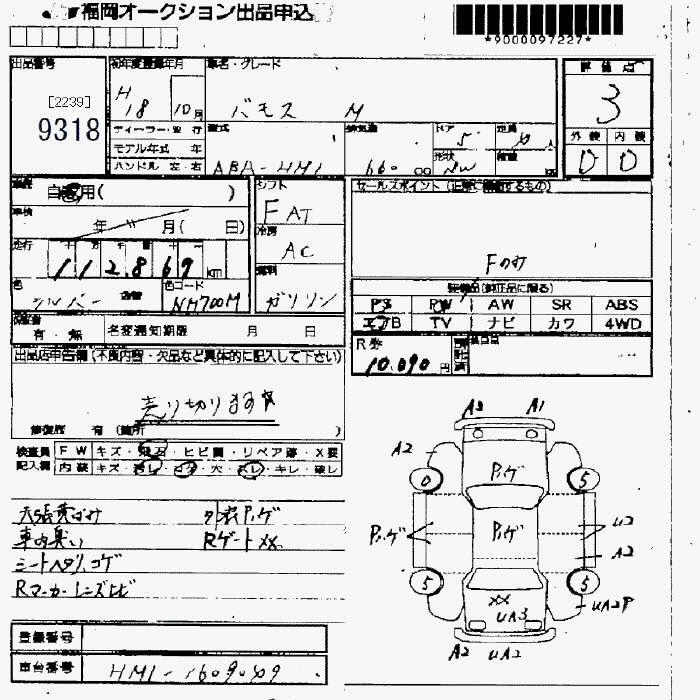 福岡オークション出品申込
*9000097227*
出品番号
[2239]
9318
初年度登録年月
H 18 10月
車名・グレード
バモス M
評価点
3
外装 内装
D D
ディーラー・並行
モデル年式 年
ハンドル 左・右
型式
ABA-HM1
排気量
660 cc
ドア
5
定員
形状
車歴
自家用( )
車検
年 月( 日)
走行
112,869 km
色
シルバー
色コード
NH700M
シフト
F AT
冷房
AC
燃料
ガソリン
セールスポイント (正常に機能するもの)
Fのみ
装備品(純正品に限る)
PS PW AW SR ABS
エアB TV ナビ カワ 4WD
有・無
名変通知期限 月 日
R券
10,090円
出品店申告欄 (不良内容・欠品など具体的に記入して下さい)
売り切ります
修復歴 有 (箇所 )
検査員記入欄
FW キズ・飛石・ヒビ・リペア跡・X要
内装 キズ・汚れ・コゲ・穴・スレ・キレ・破レ
天張黄ばみ
外装Pハゲ
車内臭い
Rゲート XX
シートヘタリ、コゲ
Rマーカーレンズヒビ
A3 A1
A2
Pハゲ
0 5
Pハゲ Pハゲ
U2
A2
5 5
XX
UA3
UA2P
A2 UA2
登録番号
車台番号
HM1-1609809